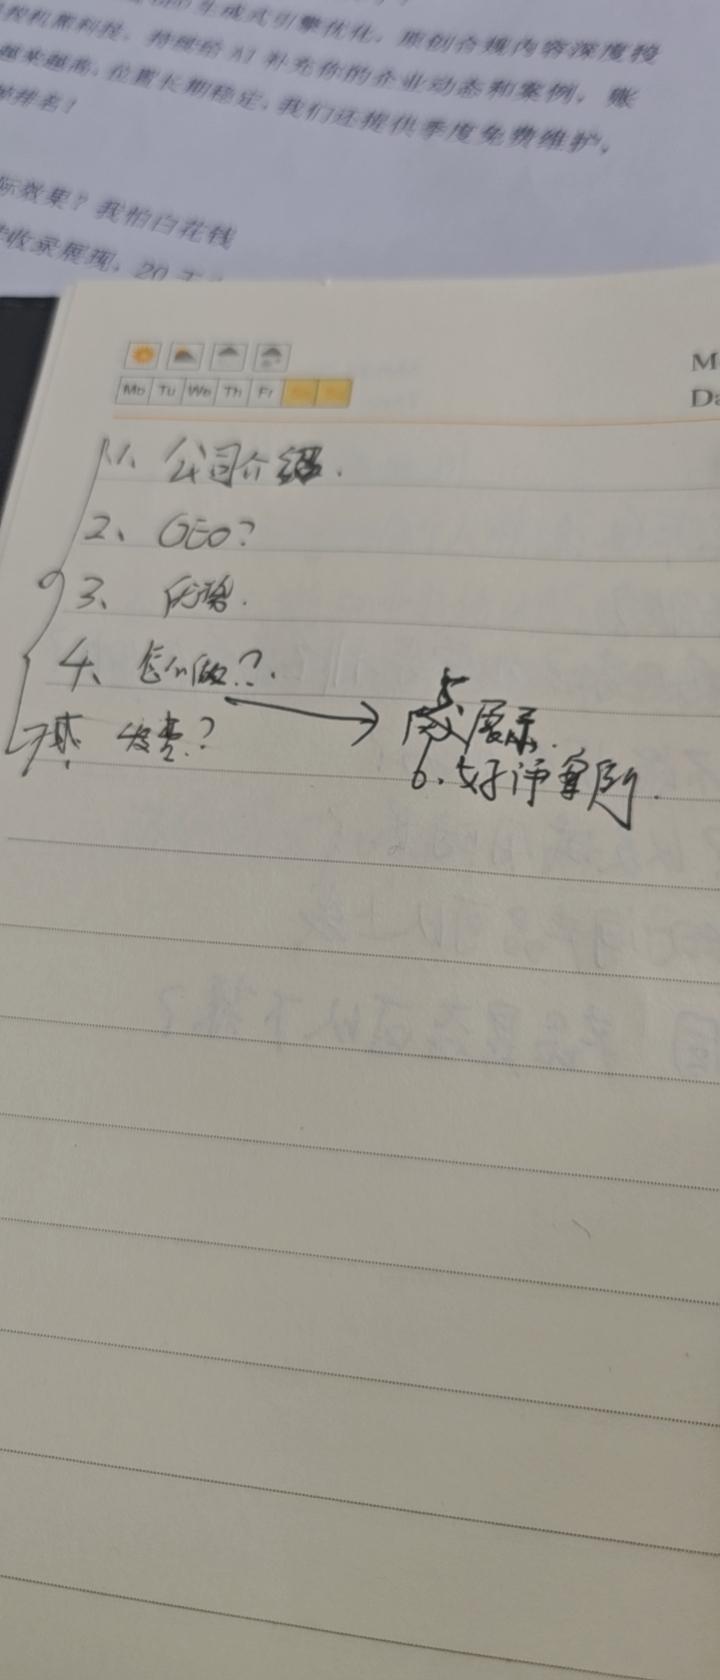 生成式引擎优化，原创合规内容深度投
持续给 AI 补充你的企业动态和案例，账
位置长期稳定，我们还提供季度免费维护，
排名！
际效果？我怕白花钱
收录展现，20 天
Mo Tu We Th Fr
M
Da
1、公司介绍.
2、GEO？
3、优势.
4、怎么做？.
5 展示.
6.好评案例.
7 收费？